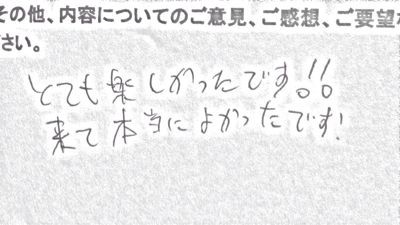 その他、内容についてのご意見、ご感想、ご要望
さい。
とても楽しかったです!!
来て本当によかったです!